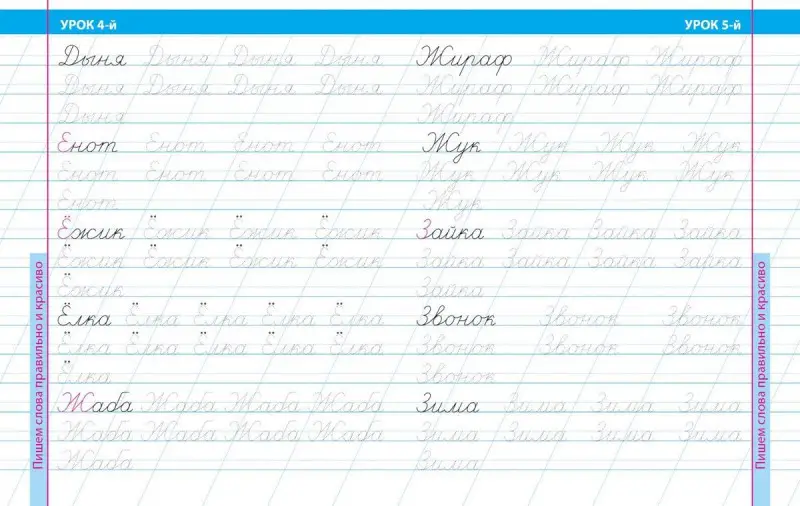 УРОК 4-й
Дыня Дыня Дыня Дыня
Дыня Дыня Дыня Дыня
Дыня
Енот Енот Енот Енот
Енот Енот Енот Енот
Енот
Ёжик Ёжик Ёжик Ёжик
Ёжик Ёжик Ёжик Ёжик
Ёжик
Ёлка Ёлка Ёлка Ёлка Ёлка
Ёлка Ёлка Ёлка Ёлка Ёлка
Ёлка
Жаба Жаба Жаба Жаба
Жаба Жаба Жаба Жаба
Жаба
Пишем слова правильно и красиво
УРОК 5-й
Жираф Жираф Жираф
Жираф Жираф Жираф
Жираф
Жук Жук Жук Жук
Жук Жук Жук Жук
Жук
Зайка Зайка Зайка Зайка
Зайка Зайка Зайка Зайка
Зайка
Звонок Звонок Звонок
Звонок Звонок Звонок
Звонок
Зима Зима Зима Зима
Зима Зима Зима Зима
Зима
Пишем слова правильно и красиво